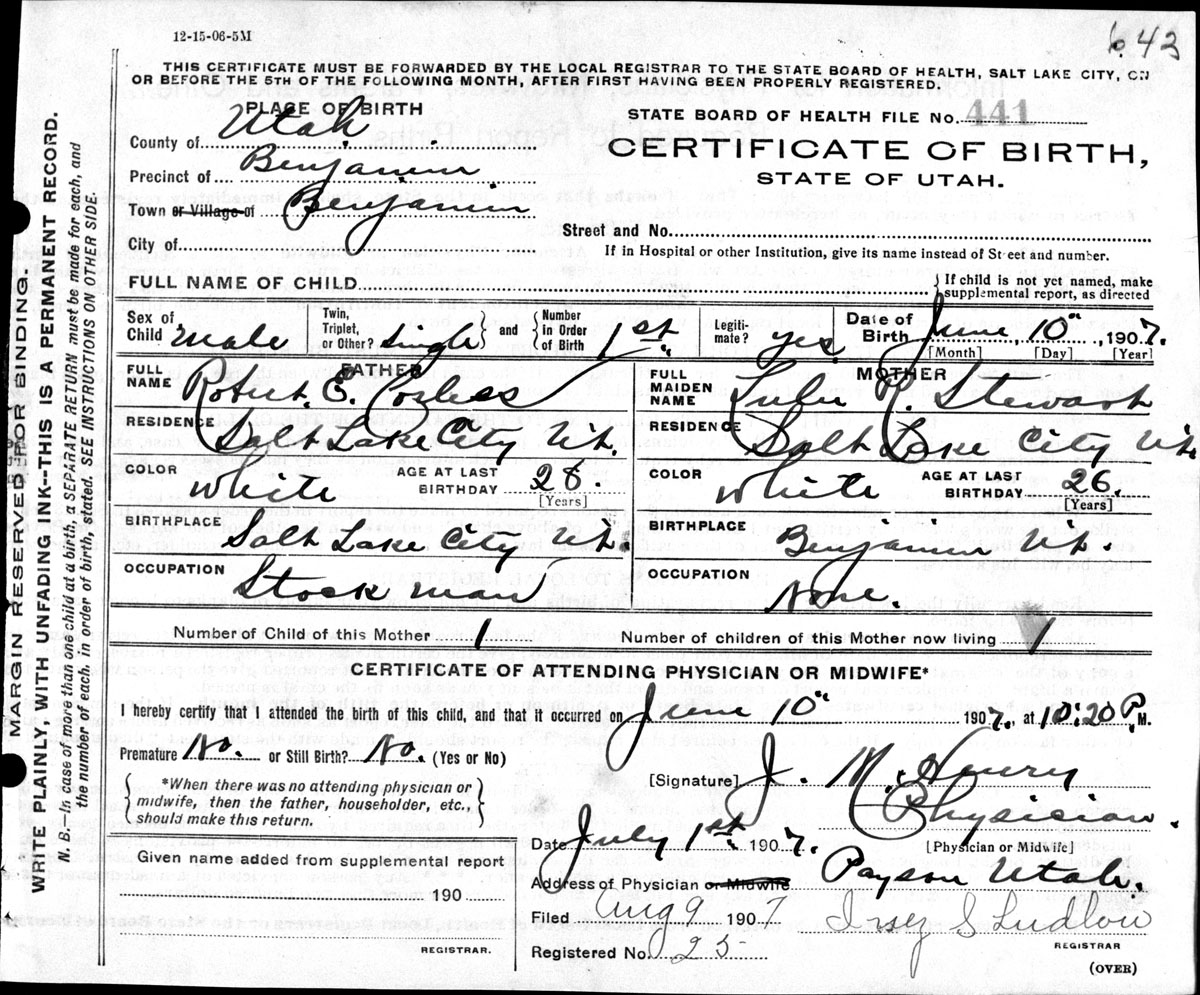 12-15-06-5M
643
THIS CERTIFICATE MUST BE FORWARDED BY THE LOCAL REGISTRAR TO THE STATE BOARD OF HEALTH, SALT LAKE CITY, ON
OR BEFORE THE 5TH OF THE FOLLOWING MONTH, AFTER FIRST HAVING BEEN PROPERLY REGISTERED.
PLACE OF BIRTH
County of Utah
Precinct of Benjamin
Town or Village of Benjamin
City of
STATE BOARD OF HEALTH FILE No. 441
CERTIFICATE OF BIRTH,
STATE OF UTAH.
Street and No.
If in Hospital or other Institution, give its name instead of Street and number.
FULL NAME OF CHILD
If child is not yet named, make
supplemental report, as directed
Sex of Child male
Twin, Triplet, or Other? Single
and Number in Order of Birth 1st
Legitimate? yes.
Date of Birth June 10", 1907.
[Month] [Day] [Year]
FATHER
FULL NAME Robert. E.
RESIDENCE Salt Lake City Ut.
COLOR White
AGE AT LAST BIRTHDAY 28.
[Years]
BIRTHPLACE Salt Lake City Ut.
OCCUPATION Stock man
MOTHER
FULL MAIDEN NAME Lulu R. Stewart
RESIDENCE Salt Lake City Ut.
COLOR White
AGE AT LAST BIRTHDAY 26.
[Years]
BIRTHPLACE Benjamin Ut.
OCCUPATION None.
Number of Child of this Mother 1
Number of children of this Mother now living 1
CERTIFICATE OF ATTENDING PHYSICIAN OR MIDWIFE*
I hereby certify that I attended the birth of this child, and that it occurred on June 10" 1907., at 10:20 P.M.
Premature? No. or Still Birth? No. (Yes or No)
*When there was no attending physician or
midwife, then the father, householder, etc.,
should make this return.
[Signature] J. M. Houry
Physician.
[Physician or Midwife]
Date July 1st 1907.
Address of Physician or Midwife Payson Utah.
Given name added from supplemental report
190
REGISTRAR.
Filed Aug 9 1907
S Ludlow
REGISTRAR
Registered No. 25
(OVER)
MARGIN RESERVED FOR BINDING.
WRITE PLAINLY WITH UNFADING INK--THIS IS A PERMANENT RECORD.
N. B.—In case of more than one child at a birth, a SEPARATE RETURN must be made for each, and
the number of each, in order of birth, stated. SEE INSTRUCTIONS ON OTHER SIDE.